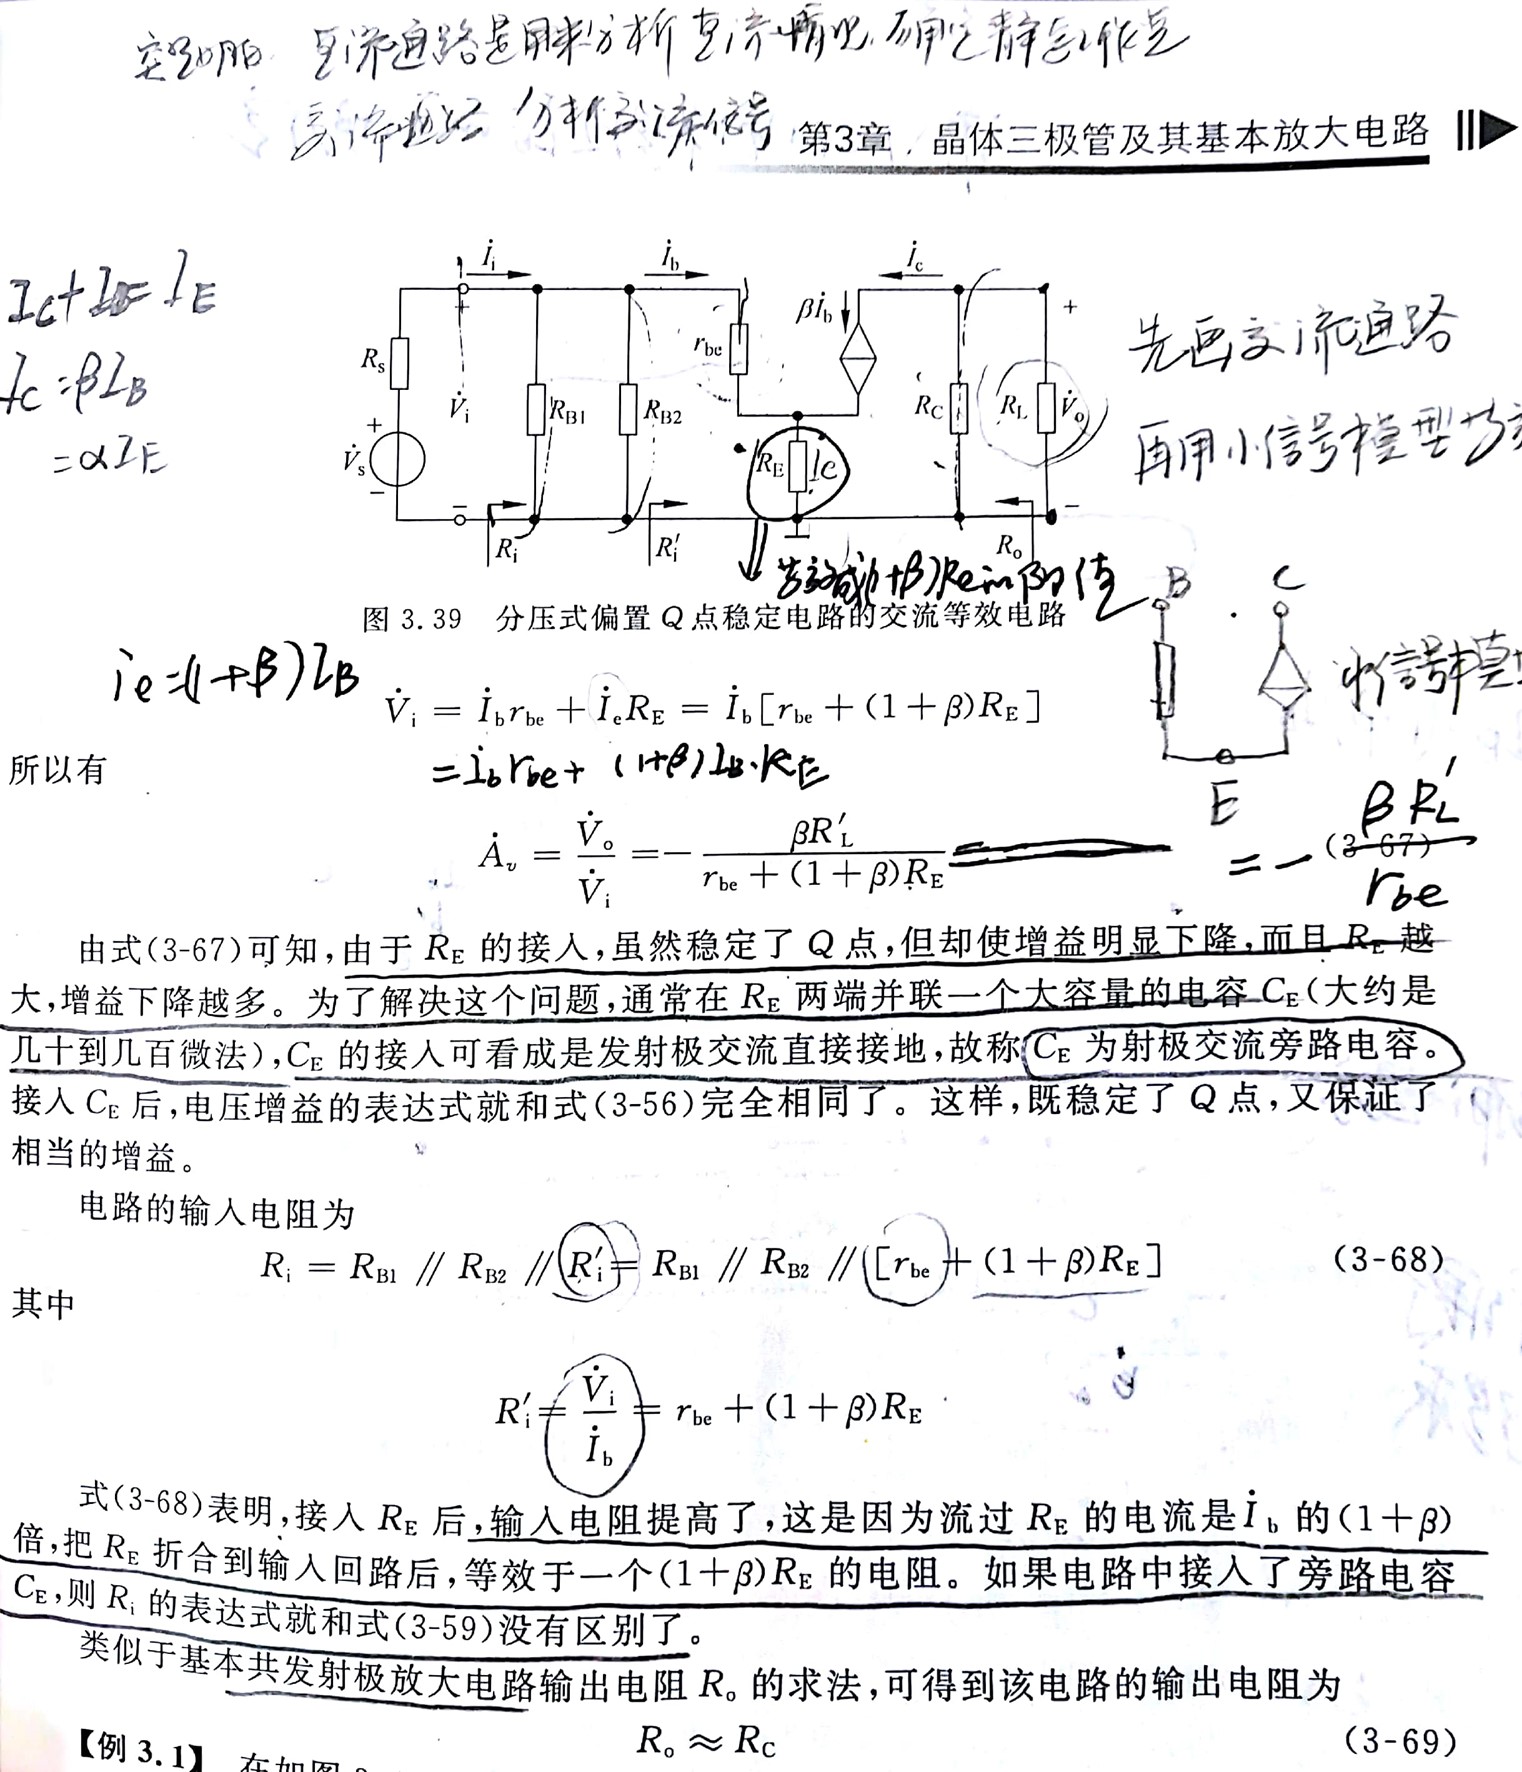 直流通路是用来分析直流情况,确定静态工作点
交流通路 分析交流信号
第3章 晶体三极管及其基本放大电路
İi İb İc
IC+IB=IE
IC=βIB
=αIE
βİb
Rs V̇i RB1 RB2 rbe RC RL V̇o
V̇s RE
Ri R′i Ro
先画交流通路
再用小信号模型
B C
E
小信号模型
图 3.39 分压式偏置 Q 点稳定电路的交流等效电路
ie=(1+β)IB
V̇i = İbrbe + İeRE = İb[rbe + (1+β)RE]
所以有
=İbrbe+(1+β)IB·RE
Ȧv = V̇o/V̇i = − βR′L/(rbe + (1+β)RE) (3-67)
= − βR′L/rbe
由式(3-67)可知,由于 RE 的接入,虽然稳定了 Q 点,但却使增益明显下降,而且 RE 越
大,增益下降越多。为了解决这个问题,通常在 RE 两端并联一个大容量的电容 CE(大约是
几十到几百微法),CE 的接入可看成是发射极交流直接接地,故称 CE 为射极交流旁路电容。
接入 CE 后,电压增益的表达式就和式(3-56)完全相同了。这样,既稳定了 Q 点,又保证了
相当的增益。
电路的输入电阻为
Ri = RB1 // RB2 // R′i = RB1 // RB2 // [rbe + (1+β)RE] (3-68)
其中
R′i = V̇i/İb = rbe + (1+β)RE
式(3-68)表明,接入 RE 后,输入电阻提高了,这是因为流过 RE 的电流是 İb 的(1+β)
倍,把 RE 折合到输入回路后,等效于一个(1+β)RE 的电阻。如果电路中接入了旁路电容
CE,则 Ri 的表达式就和式(3-59)没有区别了。
类似于基本共发射极放大电路输出电阻 Ro 的求法,可得到该电路的输出电阻为
Ro ≈ RC (3-69)
【例 3.1】 在如图